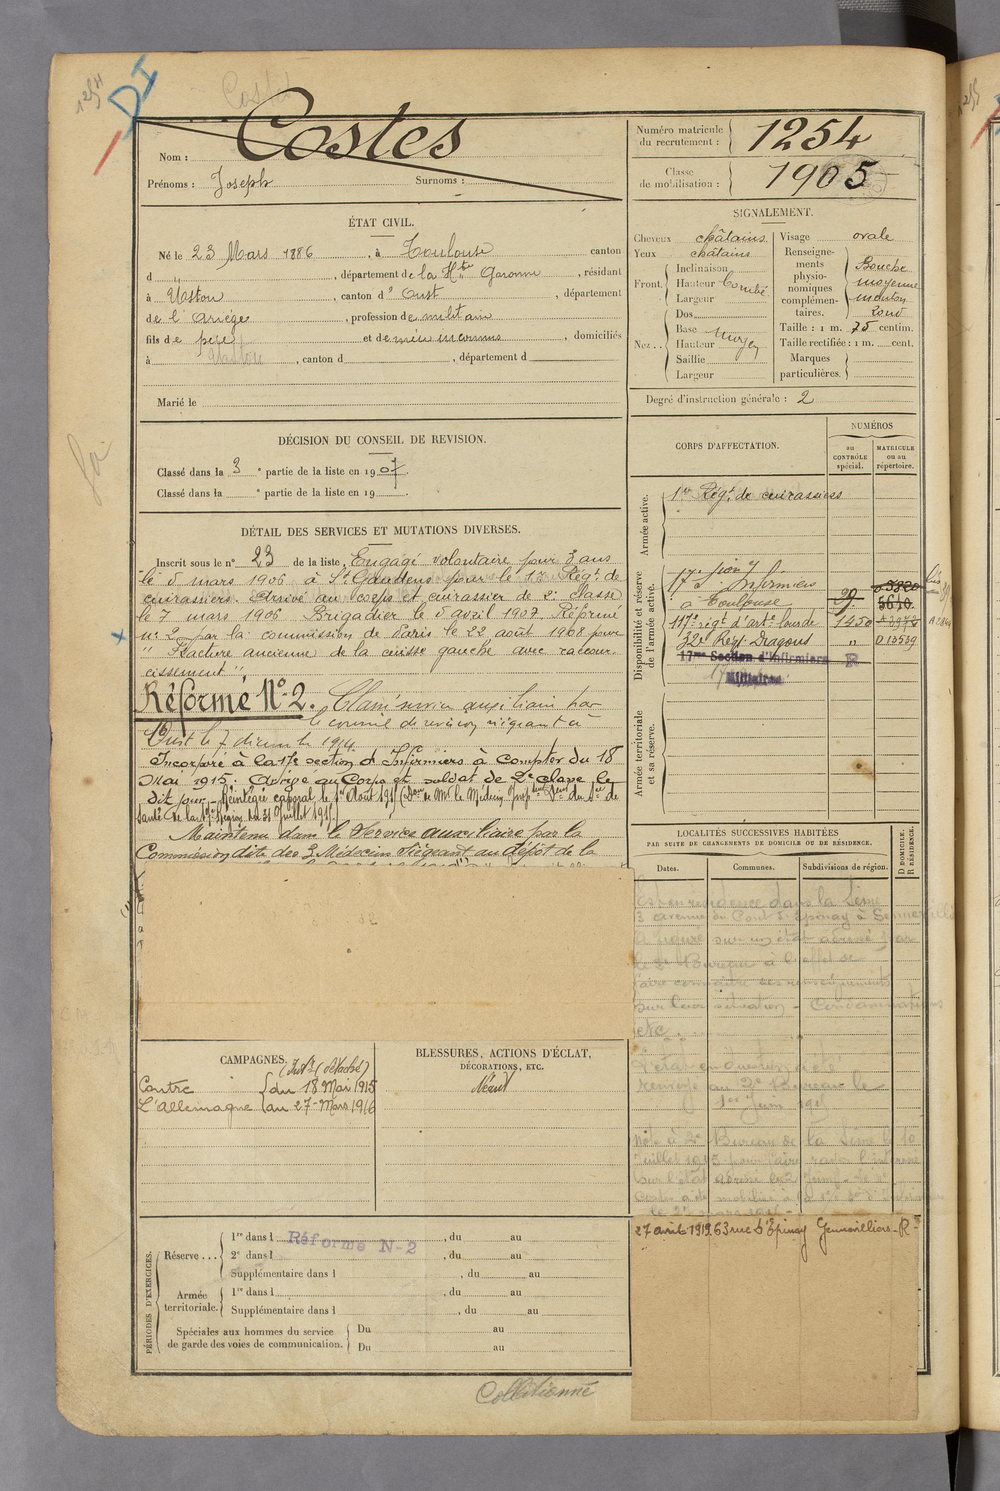 1254
DI
Costes
Nom : Costes
Prénoms : Joseph Surnoms :
Numéro matricule du recrutement : 1254
Classe de mobilisation : 1905
ÉTAT CIVIL.
Né le 23 Mars 1886, à Toulouse canton
d " , département de la Hte Garonne, résidant
à Ustou, canton d'Oust, département
de l'Ariège, profession de militaire
fils de père et de mère inconnus, domiciliés
à Ustou, canton d , département d
Marié le
SIGNALEMENT.
Cheveux châtains
Yeux châtains
Front. Inclinaison
Hauteur bombé
Largeur
Nez.. Dos
Base moyen
Hauteur
Saillie
Largeur
Visage ovale
Renseignements physionomiques complémentaires. Bouche moyenne menton rond
Taille : 1 m. 75 centim.
Taille rectifiée : 1 m. cent.
Marques particulières.
Degré d'instruction générale : 2
DÉCISION DU CONSEIL DE REVISION.
Classé dans la 3e partie de la liste en 1907.
Classé dans la e partie de la liste en 19 .
DÉTAIL DES SERVICES ET MUTATIONS DIVERSES.
Inscrit sous le n° 23 de la liste, Engagé volontaire pour 3 ans
le 5 mars 1906 à St Gaudens pour le 1er Régt de
cuirassiers. Arrivé au corps et cuirassier de 2e classe
le 7 mars 1906 Brigadier le 5 avril 1907. Réformé
n° 2 par la commission de Paris le 22 août 1908 pour
" Fracture ancienne de la cuisse gauche avec raccour
cissement "
Réformé N° 2. Classé service auxiliaire par
le conseil de revision siégeant à
Oust le 7 décembre 1914.
Incorporé à la 17e section d'Infirmiers à compter du 18
Mai 1915. Arrivé au Corps et soldat de 2e classe le
dit jour. Réintégré caporal le 1er Août 1915 (Don de Mr le Médecin Inspr Deur du Sce de
Santé de la 17e Région du 31 Juillet 1915).
Maintenu dans le Service auxiliaire par la
Commission dite des 3 Médecins siégeant au dépôt de la
CORPS D'AFFECTATION.
NUMÉROS
au CONTRÔLE spécial.
MATRICULE ou au répertoire.
Armée active.
1er Régt de cuirassiers
Disponibilité et réserve de l'armée active.
17e Son d'Infirmiers
à Toulouse 29. 5610
117e régt d'arte lourde 1450
32e Régt Dragons " D13539
17me Section d'Infirmiers R
Militaires
Armée territoriale et sa réserve.
LOCALITÉS SUCCESSIVES HABITÉES
PAR SUITE DE CHANGEMENTS DE DOMICILE OU DE RÉSIDENCE.
Dates. Communes. Subdivisions de région. D DOMICILE. R RÉSIDENCE.
Est en résidence dans la Seine
3 avenue du Pont d'Epinay à Gennevilliers
A figuré sur un état adressé par
le 2e Bureau à l'effet de
faire connaître des renseignements
sur leur situation - Condamnations
etc.
renvoyé au 2e Bureau le
1er Juin 1915
Note à 2e Bureau de la Seine le 10
Juillet 1915 pour faire rayer l'intéressé
27 avril 1919. 63 rue d'Epinay Gennevilliers - R -
CAMPAGNES.
(Intr (détaché)
Contre L'Allemagne { du 18 Mai 1915
au 27 Mars 1916
BLESSURES, ACTIONS D'ÉCLAT,
DÉCORATIONS, ETC.
Néant
PÉRIODES D'EXERCICES.
Réserve ... 1re dans l Réforme N-2, du au
2e dans l , du au
Supplémentaire dans l , du au
Armée territoriale. 1re dans l , du au
Supplémentaire dans l , du au
Spéciales aux hommes du service de garde des voies de communication. Du au
Du au
Collationné